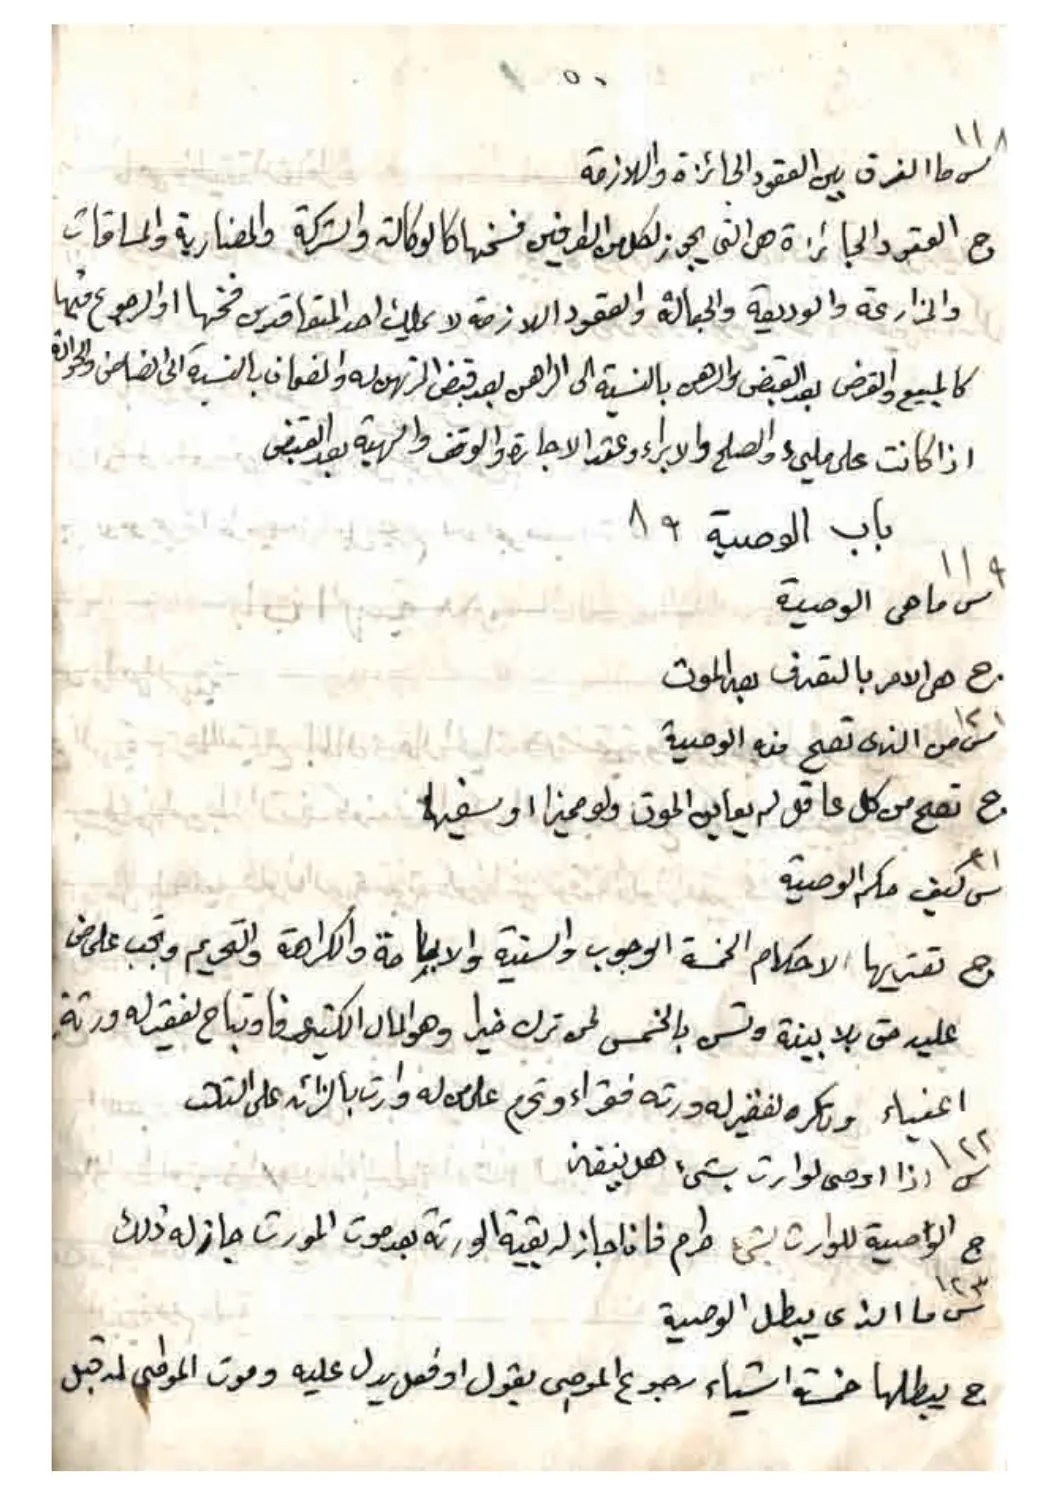 ٥٠
١١٨
س ما الفرق بين العقود الجائزة واللازمة
ج العقود الجائزة هي التي يجوز لكل من الطرفين فسخها كالوكالة والشركة والمضاربة والمساقات
والمزارعة والوديعة والجعالة والعقود اللازمة لا يملك احد المتعاقدين فسخها او الرجوع فيها
كالمبيع والقرض بعد القبض والرهن بالنسبة الى الراهن بعد قبض المرتهن له والضمان بالنسبة الى الضامن والحوالة
اذا كانت على مليء والصلح والابراء وعقد الاجارة والوقف والهبة بعد القبض
باب الوصية ٨٩
١١٩
س ما هي الوصية
ج هي الامر بالتصرف بعد الموت
١٢٠
س من الذي تصح منه الوصية
ج تصح من كل عاقل لم يعاين الموت ولو مميزا او سفيها
١٢١
س كيف حكم الوصية
ج تعتريها الاحكام الخمسة الوجوب والسنية والاباحة والكراهة والتحريم وتجب على من
عليه حق بلا بينة وتسن بالخمس لمن ترك خيرا وهو المال الكثير عرفا وتباح لفقير له ورثة
اغنياء وتكره لفقير له ورثه فقراء وتحرم على من له وارث بالزائد على الثلث
١٢٢
س اذا اوصى لوارث بشيء هل ينفذ
ج الوصية للوارث بشيء حرام فاذا اجاز له بقية الورثة بعد موت المورث جاز له ذلك
١٢٣
س ما الذي يبطل الوصية
ج يبطلها خمسة اشياء رجوع الموصي بقول او فعل يدل عليه وموت الموصى له قبل